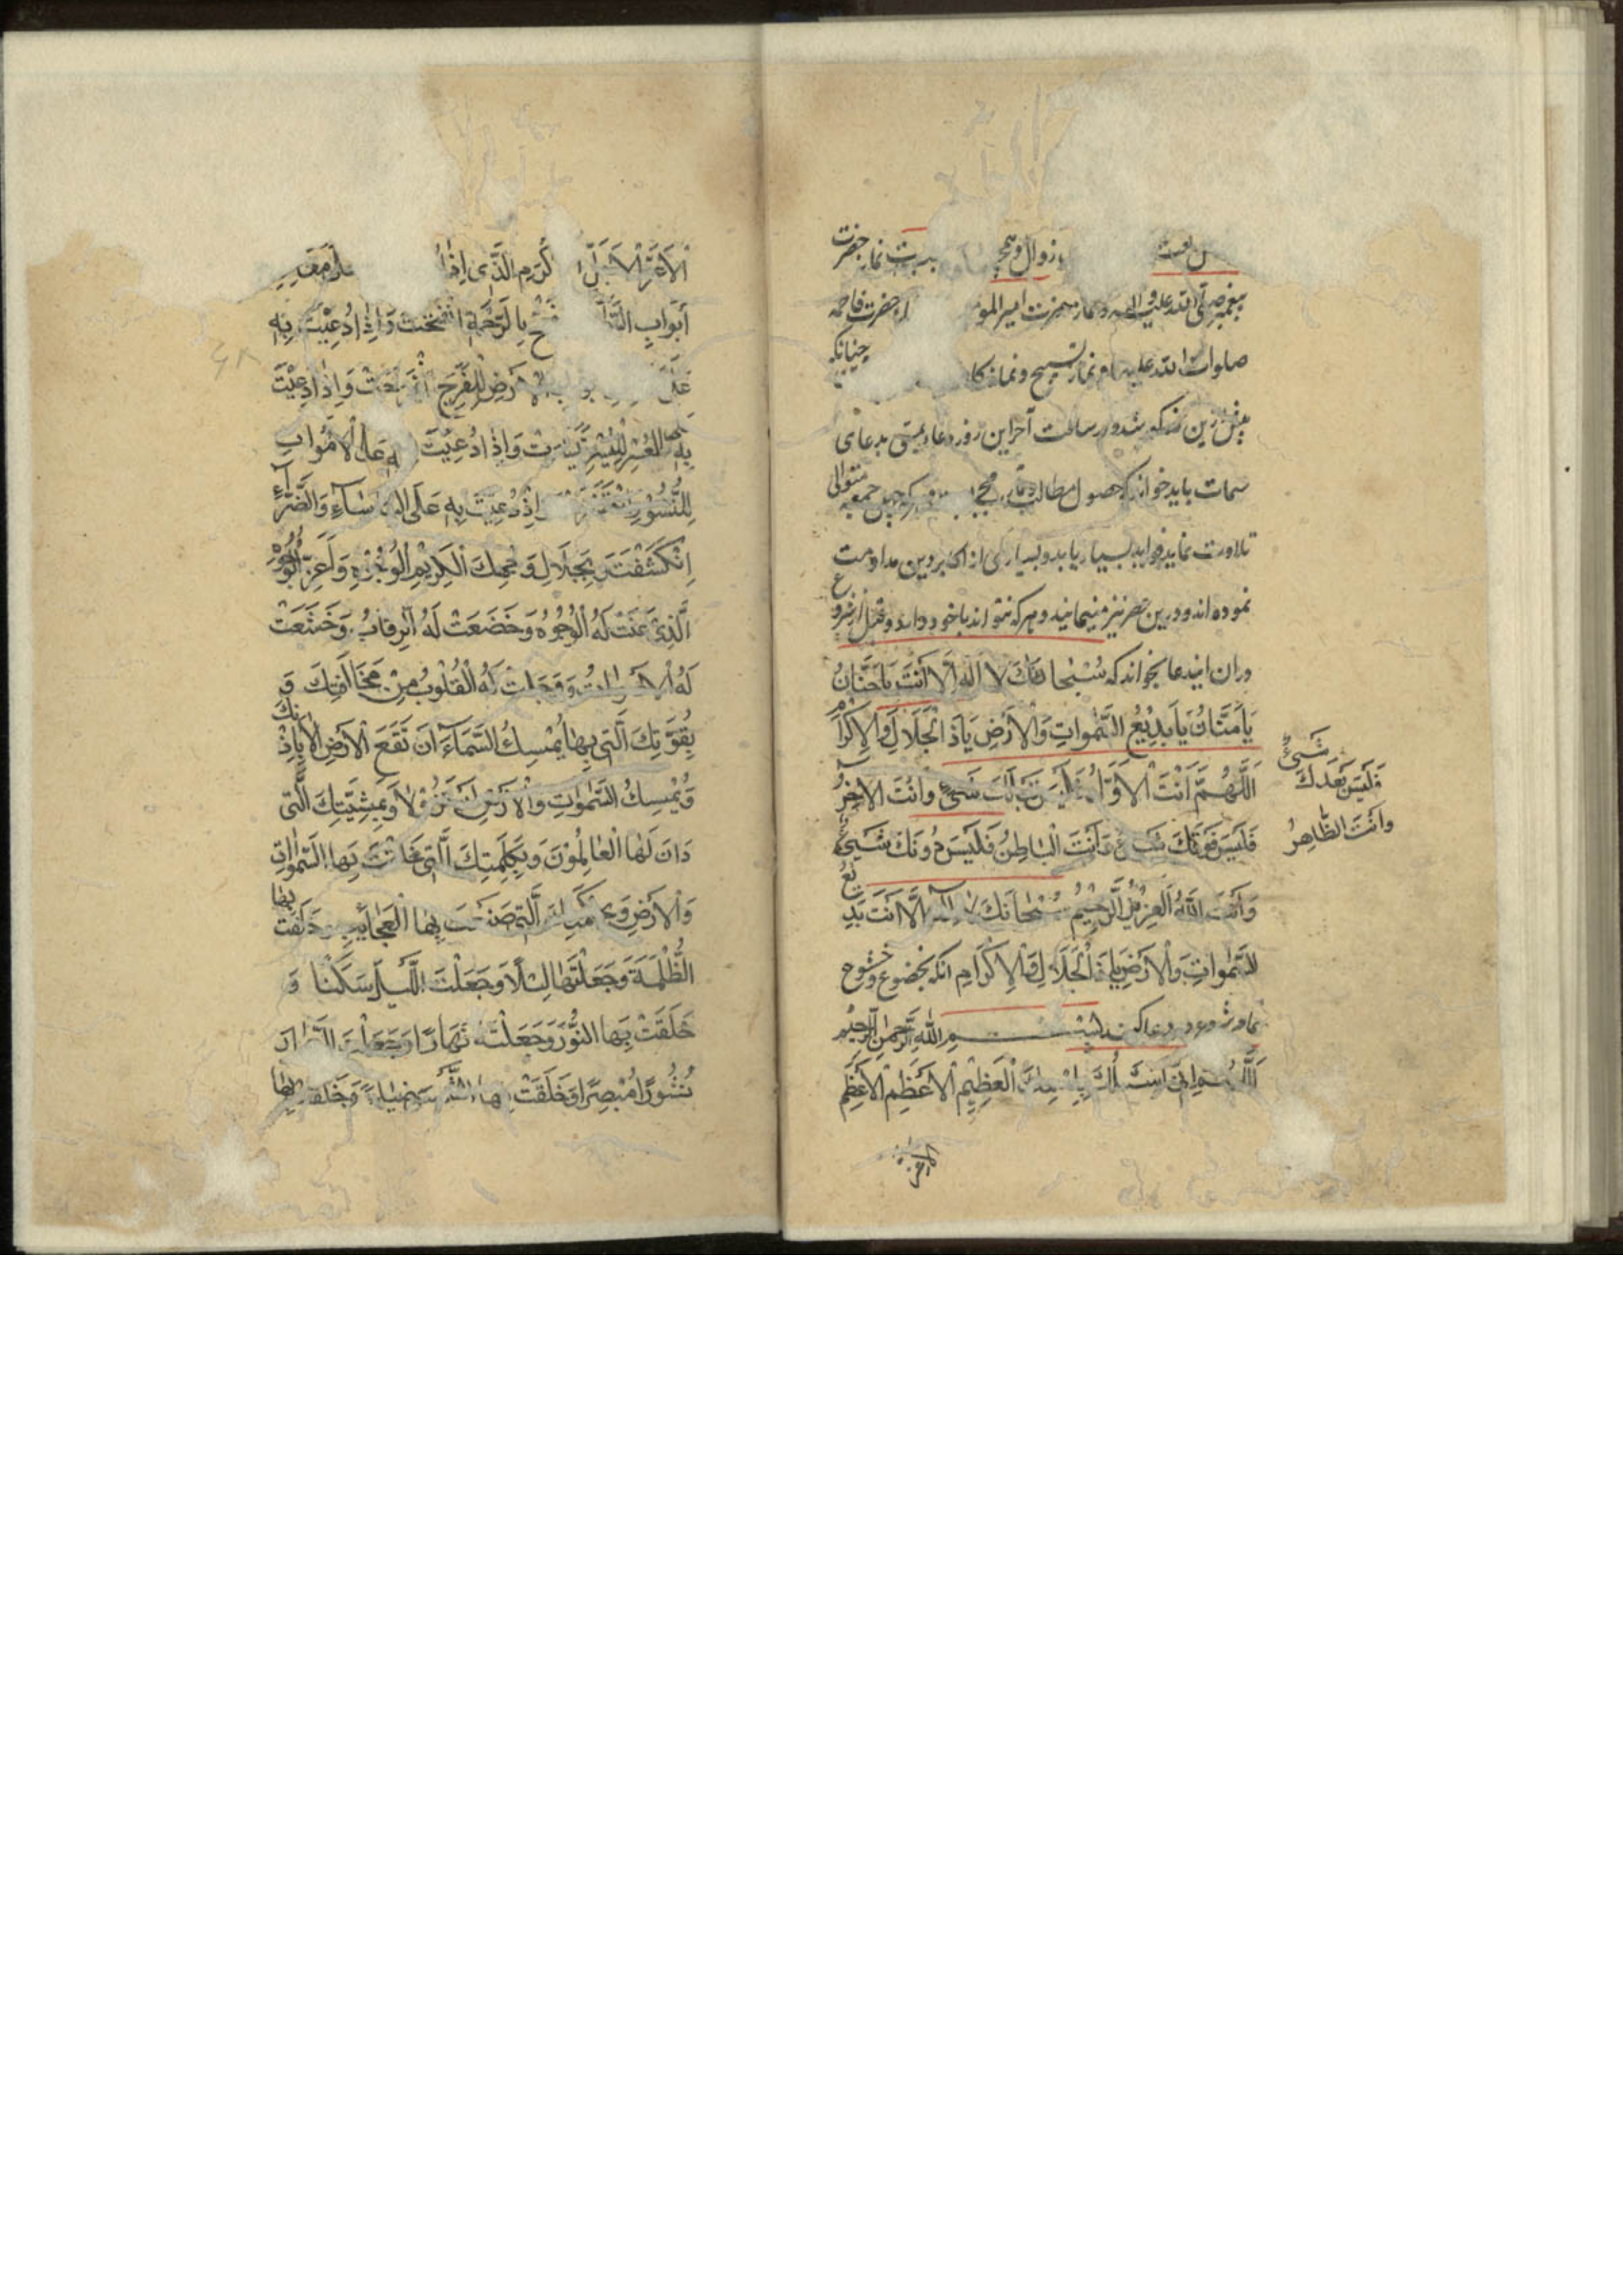 زوال و نماز حضرت
پیغمبر صلی الله علیه و اله و نماز حضرت امیر المو حضرت فاطمه
صلوات الله علیهم و نماز تسبیح و نماز کا چنانکه
پیش ازین مذکور شد و در ساعت آخر این روز دعا
سمات باید خواند که حصول مطالب چهل جمعه متوالی
تلاوت نماید فواید بسیار یابد و بسیاری از اکابر دین مداومت
نموده اند و درین عصر نیز مینمایند و هر که نتواند با خود دارد و قبل از شروع
در ان ایندعا بخواند که سُبْحانَكَ لا اِلهَ اِلّا اَنْتَ يا حَنّانُ
يا مَنّانُ يا بَديعُ السَّمواتِ وَالْاَرْضِ يا ذَا الْجَلالِ وَالْاِكْرامِ
اَللّهُمَّ اَنْتَ الْاَوَّلُ فَلَيْسَ قَبْلَكَ شَيْءٌ وَاَنْتَ الْاخِرُ
فَلَيْسَ بَعْدَكَ شَيْءٌ
وَاَنْتَ الظّاهِرُ
فَلَيْسَ فَوْقَكَ شَيْءٌ وَاَنْتَ الْباطِنُ فَلَيْسَ دُونَكَ شَيْءٌ
وَاَنْتَ اللهُ الْعَزيزُ الرَّحيمُ سُبْحانَكَ لا اِلهَ اِلّا اَنْتَ بَديعُ
السَّمواتِ وَالْاَرْضِ يا ذَا الْجَلالِ وَالْاِكْرامِ انکه بخضوع و خشوع
تمام شروع در دعا کند بِسْمِ اللهِ الرَّحْمنِ الرَّحيمِ
اَللّهُمَّ اِنّي اَسْئَلُكَ بِاسْمِكَ الْعَظيمِ الْاَعْظَمِ الْاَعْظَمِ
الاعز
الْاَعَزِّ الْاَجَلِّ الْاَكْرَمِ الَّذي اِذا
اَبْوابِ السَّماءِ لِلْفَتْحِ بِالرَّحْمَةِ انْفَتَحَتْ وَاِذا دُعيتَ بِهِ
عَلى اَبْوابِ الْاَرْضِ لِلْفَرَجِ انْفَرَجَتْ وَاِذا دُعيتَ
بِهِ عَلَى الْعُسْرِ لِلْيُسْرِ تَيَسَّرَتْ وَاِذا دُعيتَ بِهِ عَلَى الْاَمْواتِ
لِلنُّشُورِ انْتَشَرَتْ وَاِذا دُعيتَ بِهِ عَلَى الْبَاْساءِ وَالضَّرّاءِ
اِنْكَشَفَتْ بِجَلالِ وَجْهِكَ الْكَريمِ الْوُجُوهِ وَاَعَزِّ الْوُجُوهِ
اَلَّذي عَنَتْ لَهُ الْوُجُوهُ وَخَضَعَتْ لَهُ الرِّقابُ وَخَشَعَتْ
لَهُ الْاَصْواتُ وَوَجِلَتْ لَهُ الْقُلُوبُ مِنْ مَخافَتِكَ وَ
بِقُوَّتِكَ الَّتي بِها تُمْسِكُ السَّماءَ اَنْ تَقَعَ الْاَرْضِ اِلّا بِاِذْنِكَ
وَتُمْسِكُ السَّمواتِ وَالْاَرْضَ اَنْ تَزُولا وَبِمَشِيَّتِكَ الَّتي
دانَ لَهَا الْعالَمُونَ وَبِكَلِمَتِكَ الَّتي خَلَقْتَ بِهَا السَّمواتِ
وَالْاَرْضَ وَبِحِكْمَتِكَ الَّتي صَنَعْتَ بِهَا الْعَجائِبَ وَخَلَقْتَ بِهَا
الظُّلْمَةَ وَجَعَلْتَها لَيْلًا وَجَعَلْتَ اللَّيْلَ سَكَنًا وَ
خَلَقْتَ بِهَا النُّورَ وَجَعَلْتَهُ نَهارًا وَجَعَلْتَ النَّهارَ
نُشُورًا مُبْصِرًا وَخَلَقْتَ بِهَا الشَّمْسَ ضِياءً وَخَلَقْتَ بِهَا